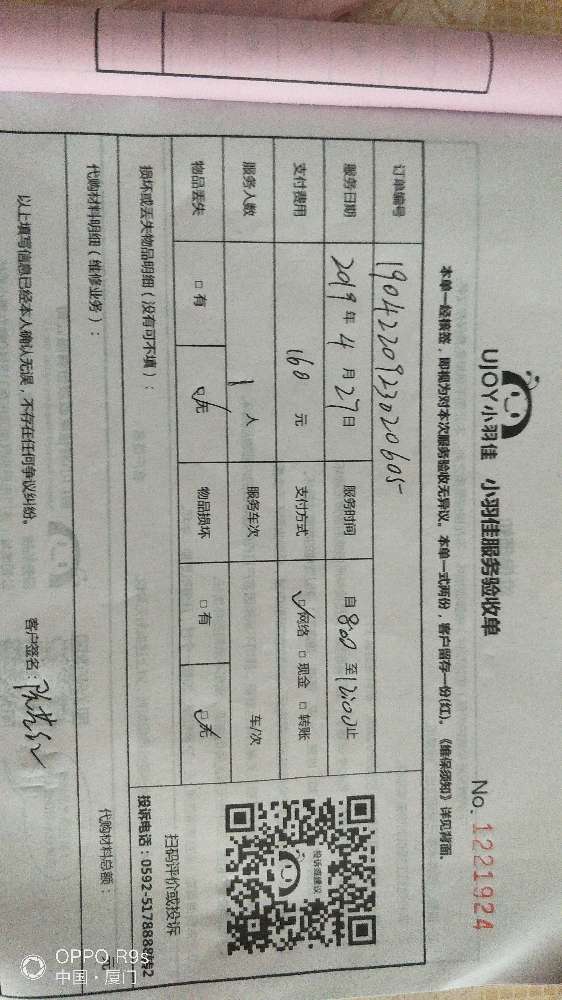 UJOY小羽佳 小羽佳服务验收单 No. 1221924
本单一经核签，即视为对本次服务验收无异议，本单一式两份，客户留存一份(红)。《维保须知》详见背面。
订单编号 1904220923020605
服务日期 2019年4月27日 服务时间 自8:00至12:00止
支付费用 160元 支付方式 □网络 □现金 □转账
服务人数 1人 服务车次 车/次
物品丢失 □有 □无 物品损坏 □有 □无
投诉或建议
扫码评价或投诉
投诉电话：0592-5178888转2
损坏或丢失物品明细（没有可不填）：
代购材料明细（维修业务）： 代购材料总额： 元
以上填写信息已经本人确认无误，不存在任何争议纠纷。 客户签名：
OPPO R9s
中国·厦门